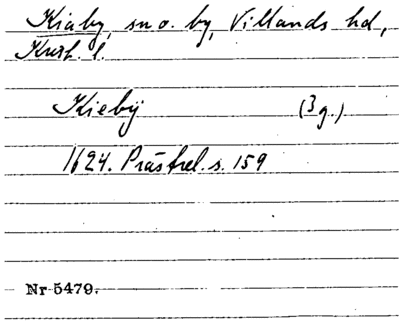 Kiaby, sn o. by, Villands hd,
Krist. l.
Kieby (3 g.)
1624. Prästrel. s. 159
Nr 5479.